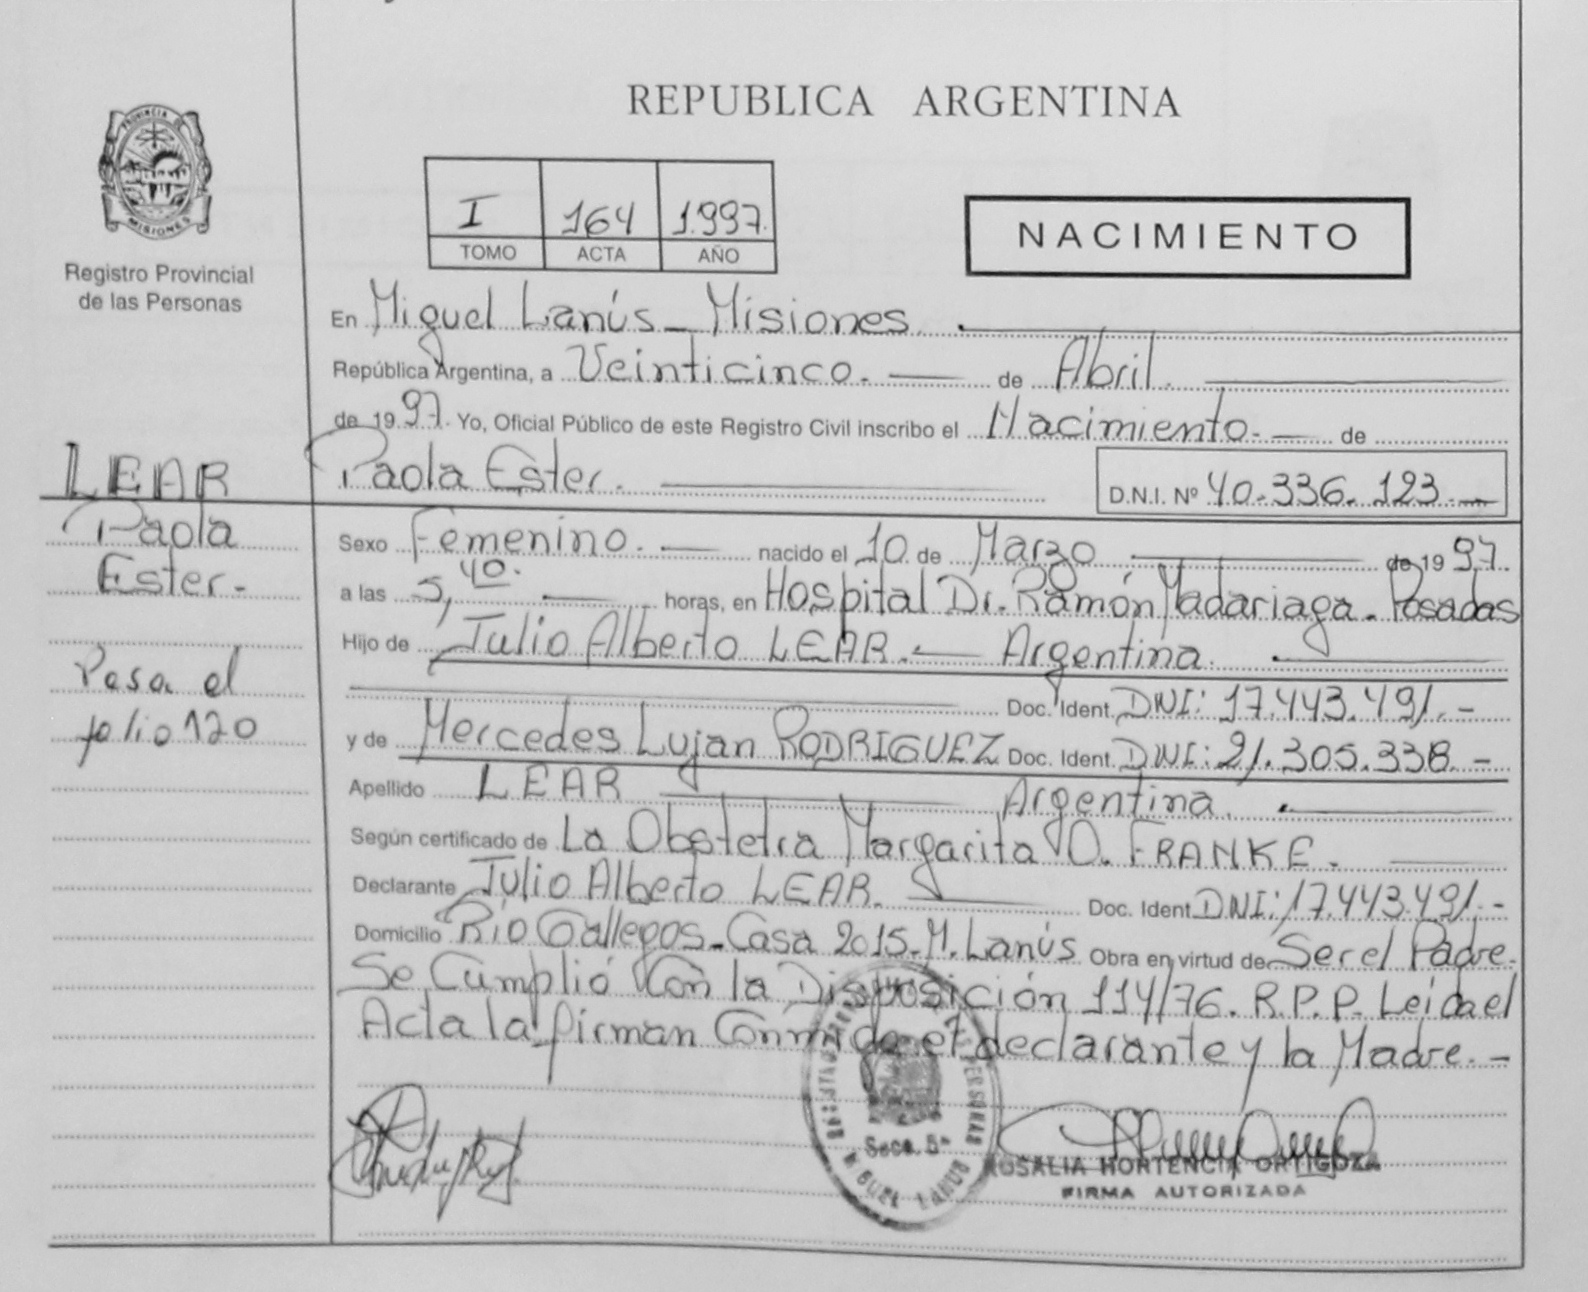 REPUBLICA ARGENTINA
PROVINCIA DE
MISIONES
Registro Provincial
de las Personas
I 164 1.997.
TOMO ACTA AÑO
NACIMIENTO
En Miguel Lanús - Misiones.
República Argentina, a Veinticinco. de Abril.
de 1997. Yo, Oficial Público de este Registro Civil inscribo el Nacimiento. de
Paola Ester.
D.N.I. Nº 40.336.123.
LEAR
Paola
Ester.-
Pasa el
folio 120
Sexo Femenino. nacido el 10 de Marzo de 1997.
a las 5,40. horas, en Hospital Dr. Ramón Madariaga - Posadas
Hijo de Julio Alberto LEAR. Argentina.
Doc. Ident. DNI: 17.443.491.-
y de Mercedes Lujan RODRIGUEZ Doc. Ident. DNI: 21.305.338.-
Apellido LEAR Argentina.
Según certificado de La Obstetra Margarita O. FRANKE.
Declarante Julio Alberto LEAR. Doc. Ident. DNI: 17.443.491.-
Domicilio Río Gallegos - Casa 2015 - M. Lanús Obra en virtud de Ser el Padre.
Se Cumplió Con la Disposición 114/76. R.P.P. Leida el
Acta la firman Conmigo el declarante y la Madre.-
PERSONAS
Secc. 5ª
LANUS
ROSALIA HORTENCIA ORTIGOZA
FIRMA AUTORIZADA